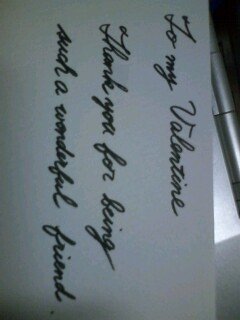 To my Valentine
Thank you for being
such a wonderful friend.